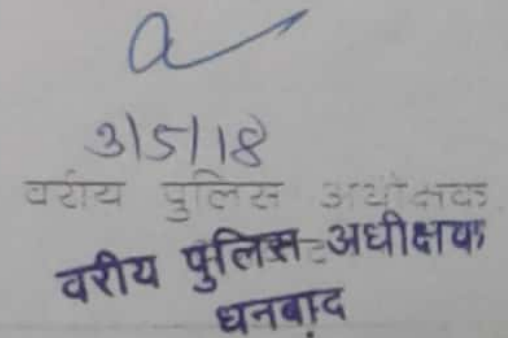 3/5/18
वरीय पुलिस अधीक्षक
वरीय पुलिस अधीक्षक
धनबाद